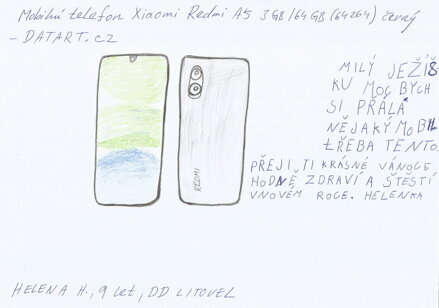 Mobilní telefon Xiaomi Redmi A5 3GB/64GB (64264) černý
- DATART.CZ
MILÝ JEŽÍŠ
KU MOC BYCH
SI PŘÁLA
NĚJAKÝ MOBIL
TŘEBA TENTO.
PŘEJI TI KRÁSNÉ VÁNOCE
HODNĚ ZDRAVÍ A ŠTĚSTÍ
V NOVÉM ROCE. HELENKA
REDMI
HELENA H., 9 let, DD LITOVEL